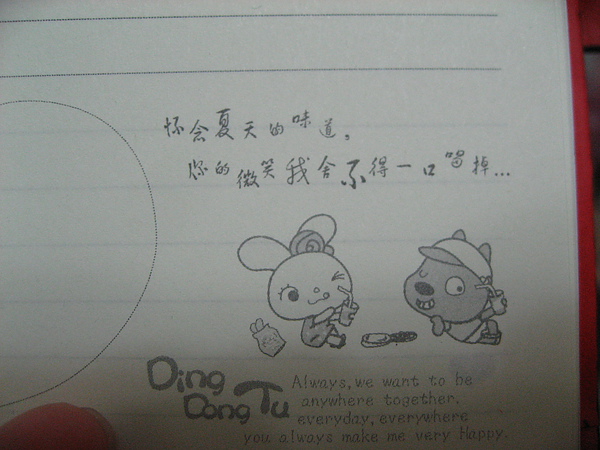 怀念夏天的味道。
你的微笑我舍不得一口喝掉...
Ding
Dong Tu
Always, we want to be
anywhere together.
everyday, everywhere
you always make me very Happy.